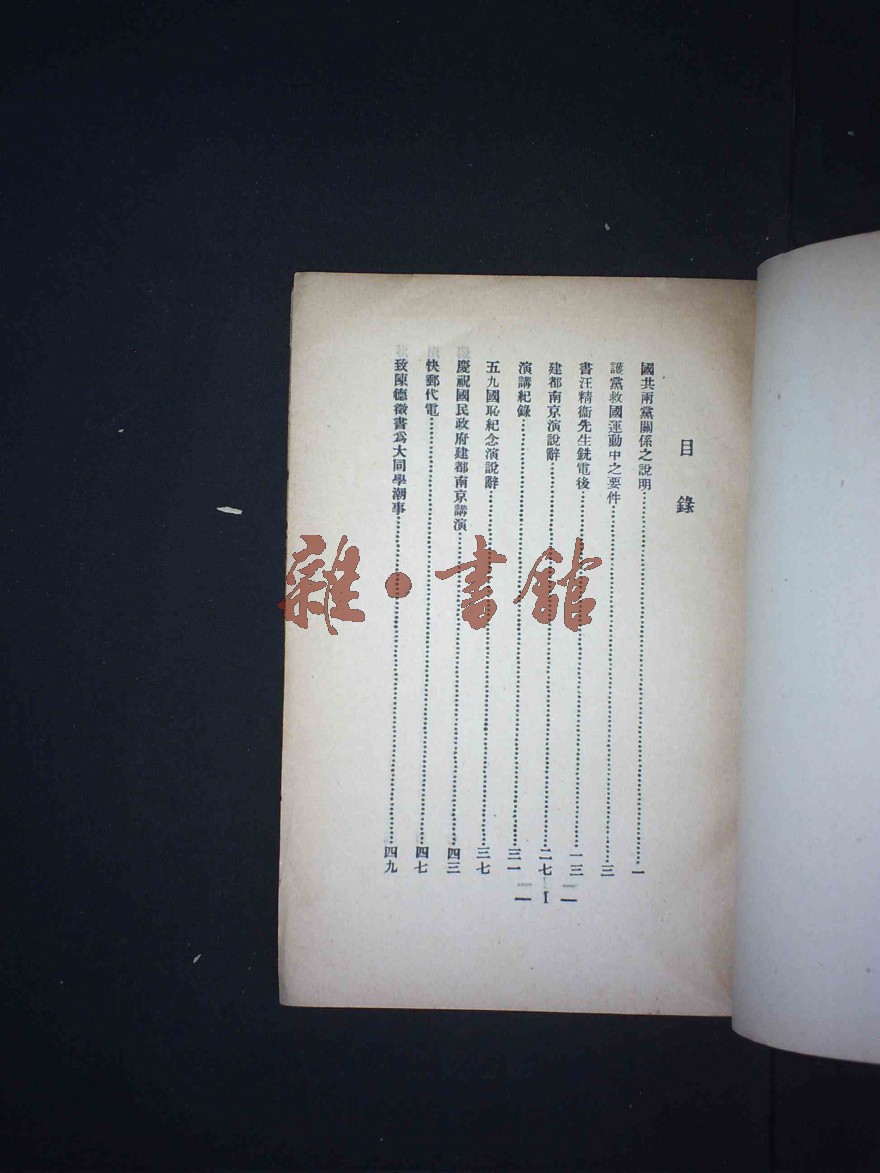 目錄
國共兩黨關係之說明……一
護黨救國運動中之要件……三
書汪精衞先生銑電後……一三
建都南京演說辭……二七
演講紀錄……三一
五九國恥紀念演說辭……三七
慶祝國民政府建都南京講演……四三
快郵代電……四七
致陳德徵書爲大同學潮事……四九
I
雜·書館